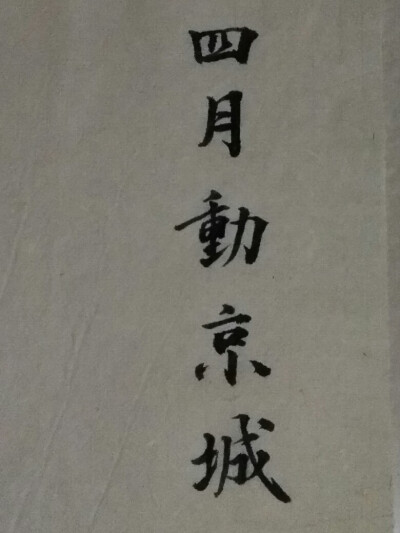 四月動京城